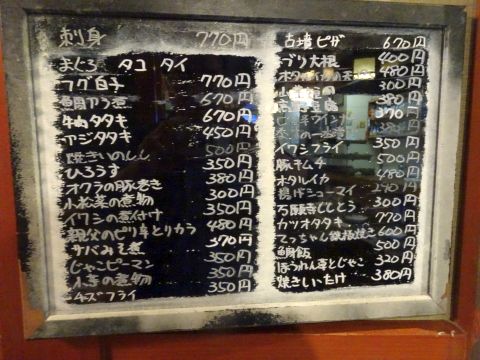 刺身 770円
まぐろ タコ タイ
フグ白子 770円
鯛アラ煮 670円
牛肉タタキ 670円
アジタタキ 450円
焼きいのしし 500円
ひろうす 350円
オクラの豚巻き 380円
小松菜の煮物 300円
イワシの煮付け 350円
親父のピリ辛とりカラ 480円
サバみそ煮 370円
じゃこピーマン 350円
小芋の煮物 350円
チーズフライ 350円
古墳ピザ 670円
ブリ大根 400円
480円
300円
380円
370
380円
イワシフライ 350円
豚キムチ 480円
ホタルイカ 480円
揚げシューマイ 290円
石願寺ししとう 300円
カツオタタキ 770円
てっちゃん鉄板焼き 600円
鯛飯 500円
ほうれん草とじゃこ 320円
焼きしいたけ 380円